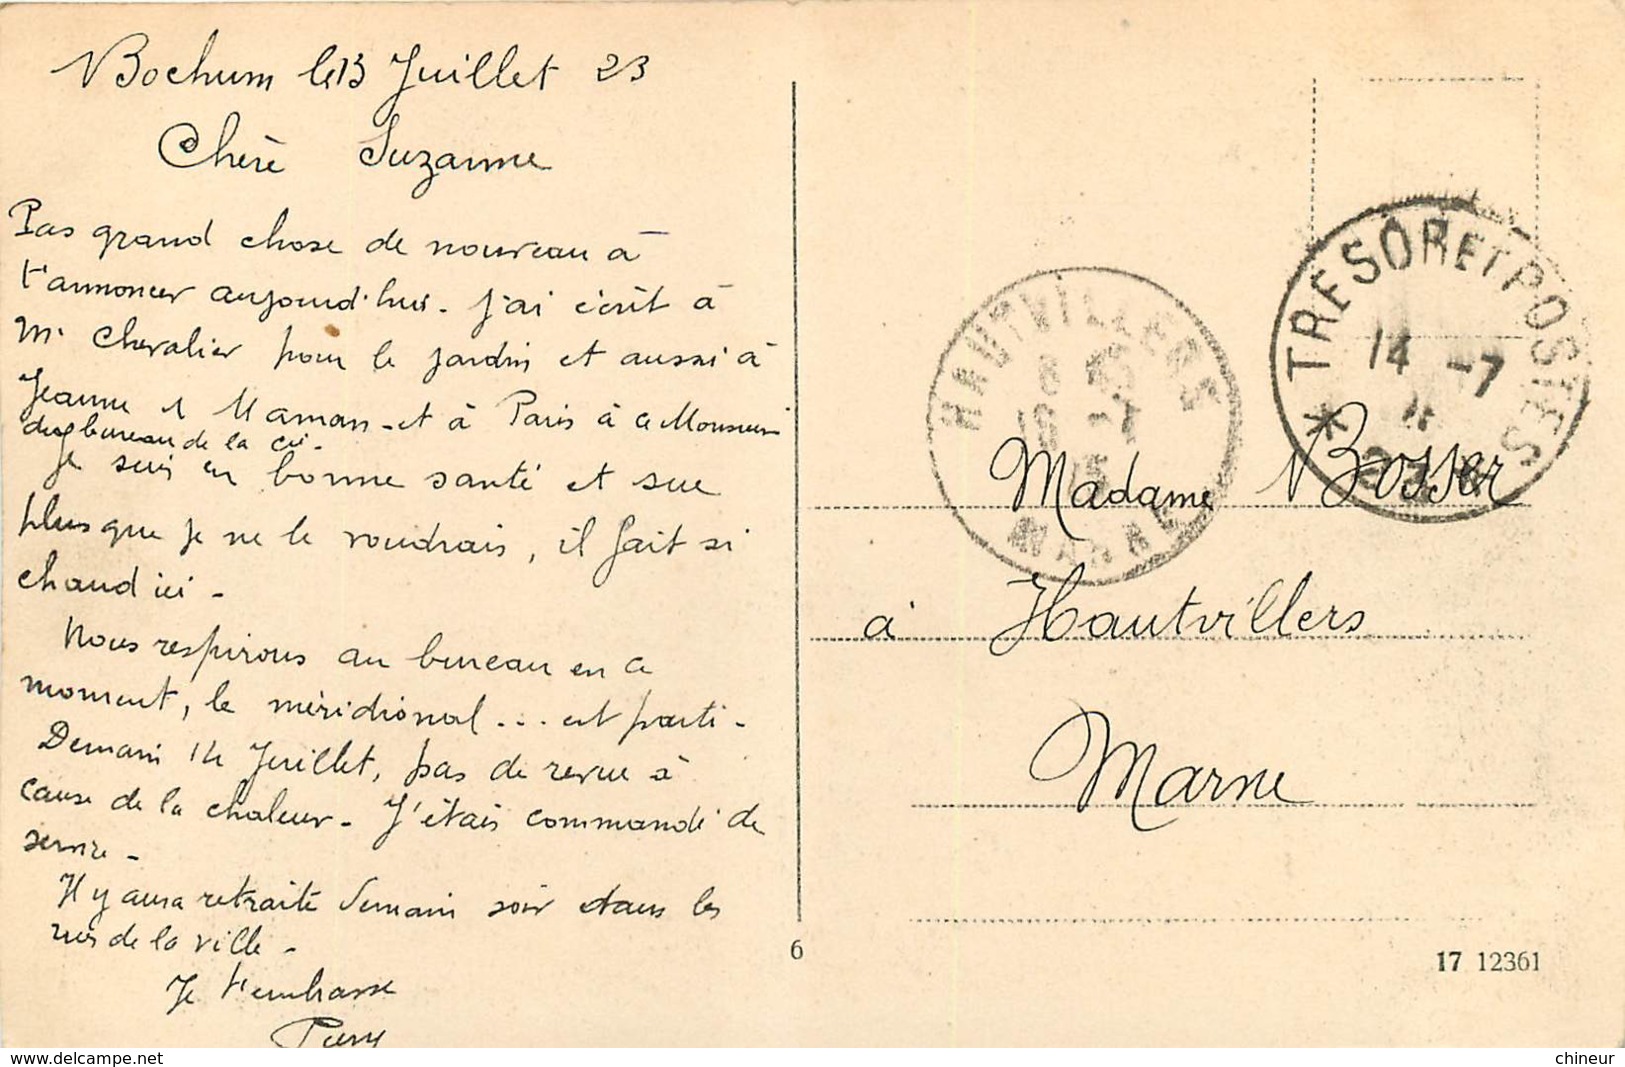 Bochum le 13 Juillet 23
Chère Suzanne
Pas grand chose de nouveau à
t'annoncer aujourd'hui. J'ai écrit à
Mr Chevalier pour le jardin et aussi à
Jeanne et Maman - et à Paris à ce Monsieur
du bureau de la
Je suis en bonne santé et sue
plus que je ne le voudrais, il fait si
chaud ici -
Nous respirons au bureau en ce
moment, le méridional ... est parti -
Demain 14 Juillet, pas de revue à
cause de la chaleur - J'étais commandé de
service -
Il y aura retraite demain soir dans les
rues de la ville -
Je t'embrasse
6
TRESOR ET POSTES
14 -7
HAUTVILLERS
MARNE
Madame Bosser
à Hautvillers
Marne
17 12361
Delcampe.net
chineur